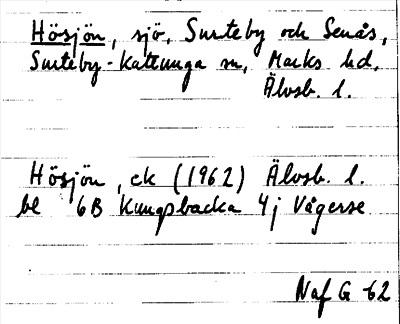 Hösjön, sjö, Surteby och Senås,
Surteby-Kattunga sn, Marks hd,
Älvsb. l.
Hösjön, ek (1962) Älvsb. l.
bl 6B Kungsbacka 4j Vågerse
Naf G 62